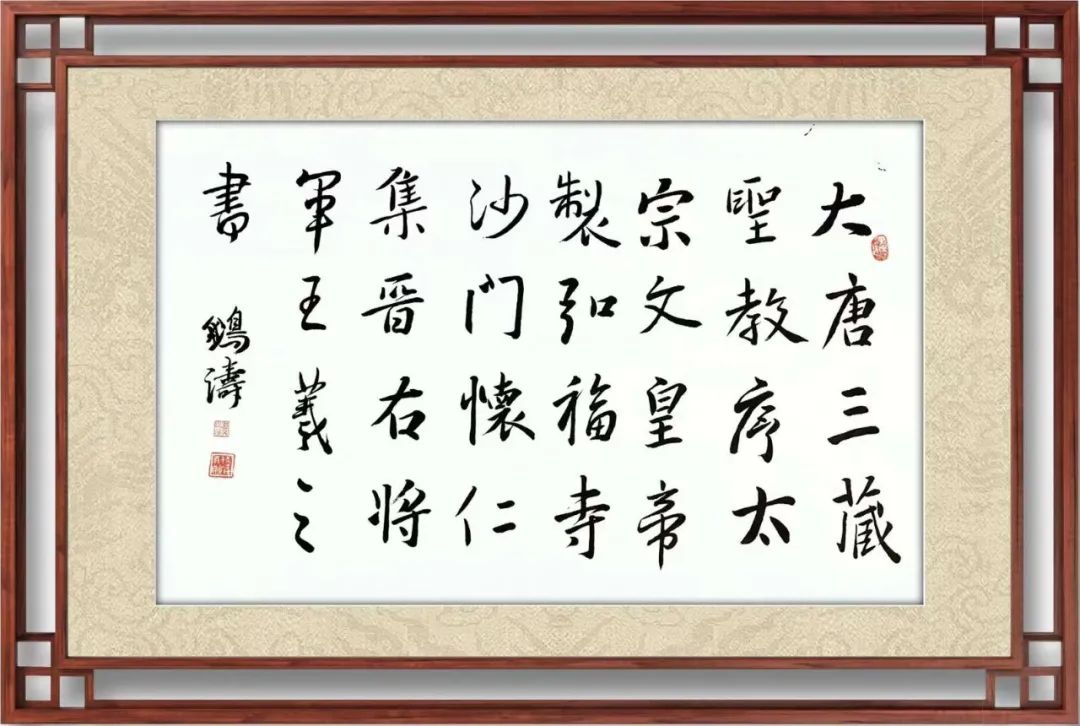 大唐三藏
聖教序太
宗文皇帝
製弘福寺
沙門懷仁
集晋右将
軍王羲之
書
濤